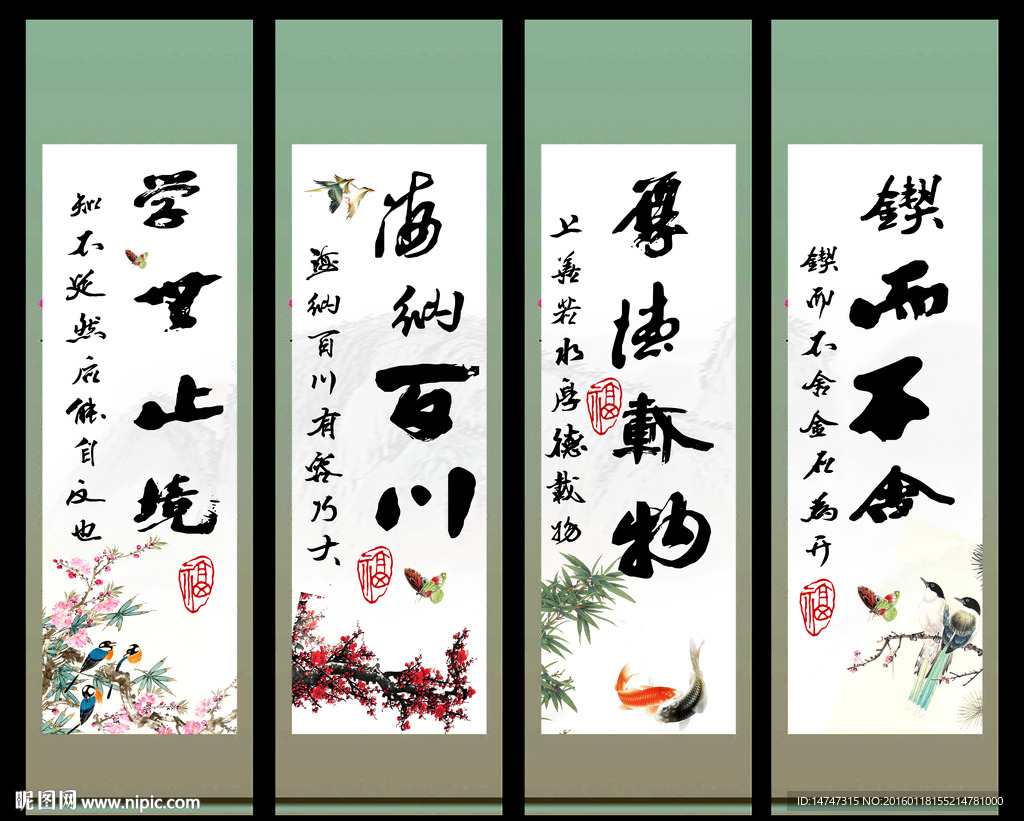 学无止境
知不足然后能自反也
福
海纳百川
海纳百川有容乃大
福
厚德载物
上善若水厚德载物
福
鍥而不舍
鍥而不舍金石為开
福
昵图网 www.nipic.com
ID:14747315 NO:20160118155214781000